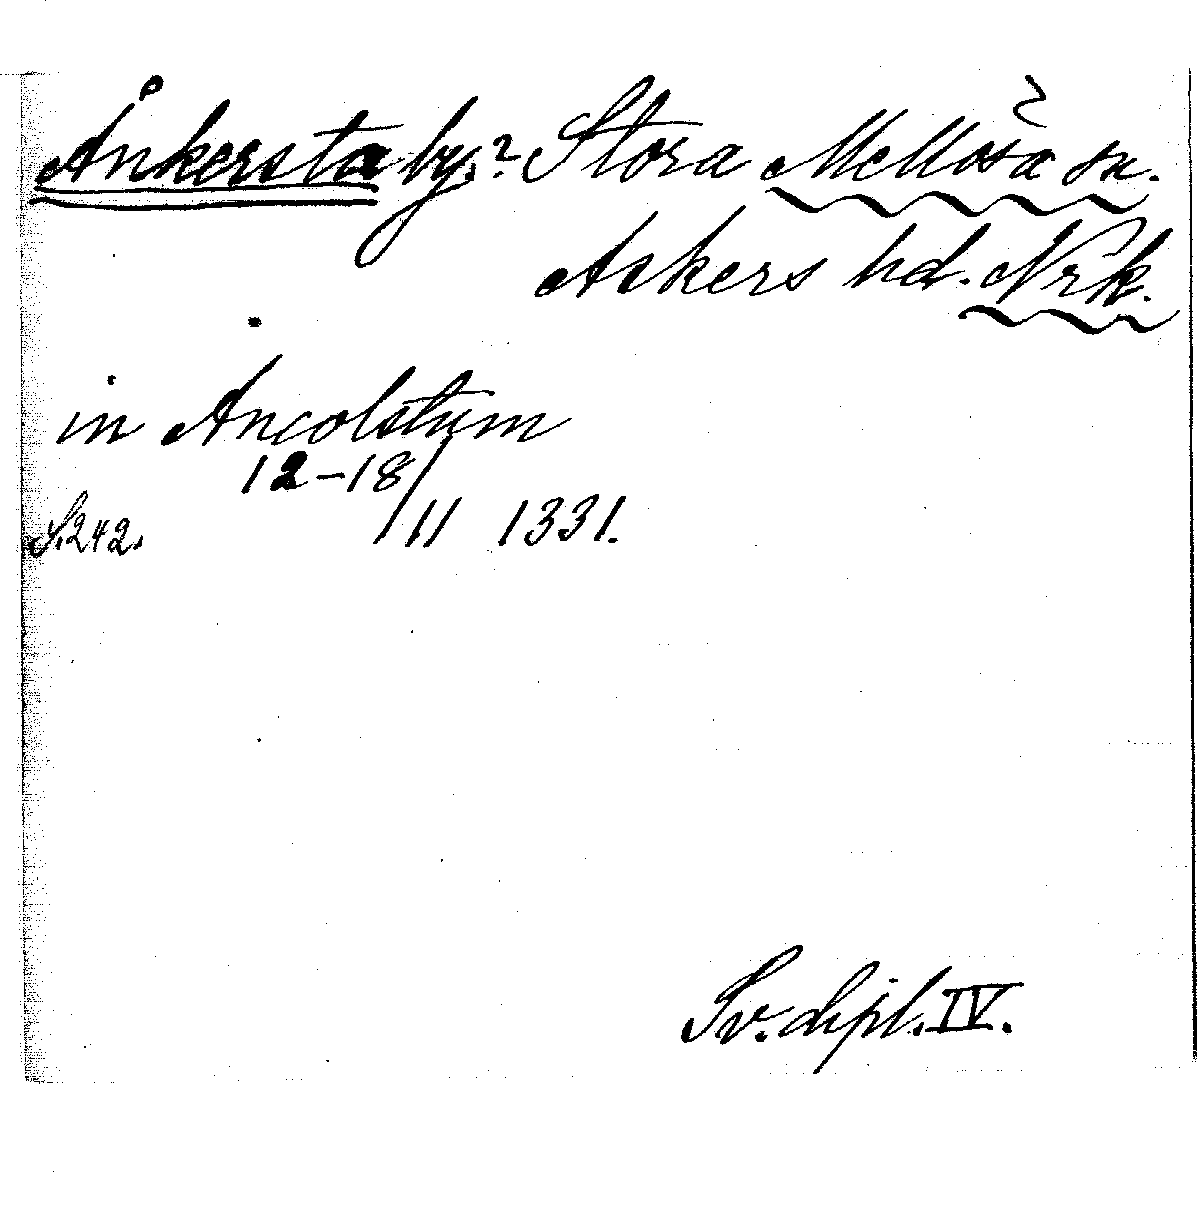 Ånkersta by.? Stora Mellösa sn.
Askers hd. Nrk.
in Ancolstum
12-18/11 1331.
S. 242.
Sv. dipl. IV.